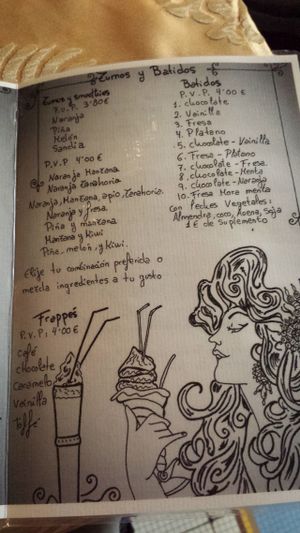 Zumos y Batidos
Zumos y smoothies
P.V.P. 3'80€
Naranja
Piña
Melón
Sandia
P.V.P 4'00€
Naranja Manzana
Naranja Zanahoria
Naranja, Manzana, apio, Zanahoria.
Naranja y fresa.
Piña y manzana
Manzana y Kiwi
Piña, melón, y Kiwi.
Elije tu combinación preferida o
mezcla ingredientes a tu gusto
Frappés
P.V.P: 4'00€
Café
chocolate
Caramelo
Vainilla
Toffé
Batidos
P.V.P. 4'00€
1. chocolate
2. Vainilla
3. Fresa
4. Platano
5. chocolate - Vainilla
6. Fresa - Platano
7. chocolate - Fresa.
8. chocolate - Menta
9. chocolate - Naranja
10. Fresa Mora menta
Con Leches Vegetales:
Almendra, coco, Avena, Soja
1€ de Suplemento